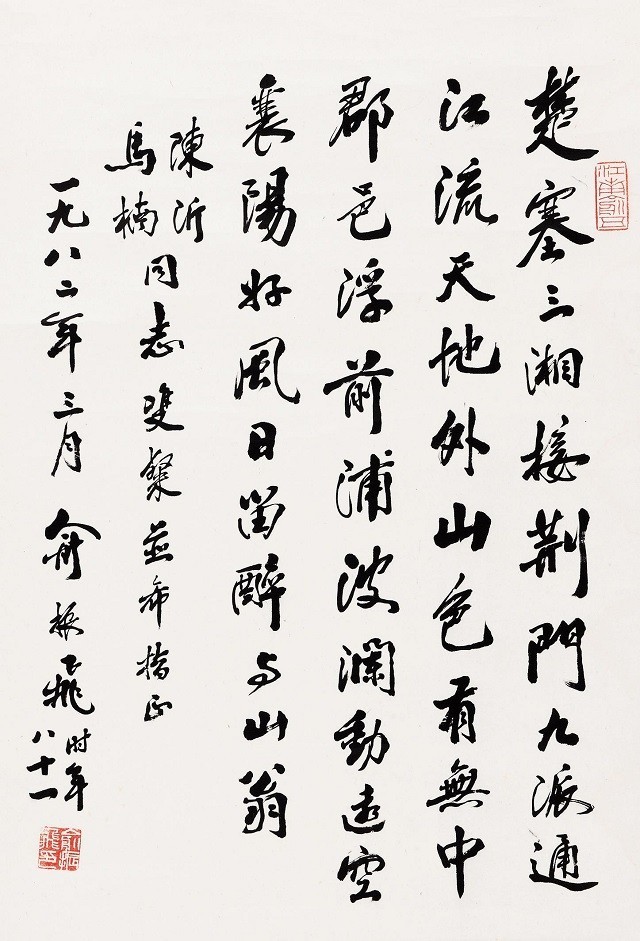 楚塞三湘接荆門九派通
江流天地外山色有無中
郡邑浮前浦波瀾動遠空
襄陽好風日留醉与山翁
陳沂
馬楠
同志雙粲並希指正
一九八二年三月俞振飛时年八十一
俞振飛印